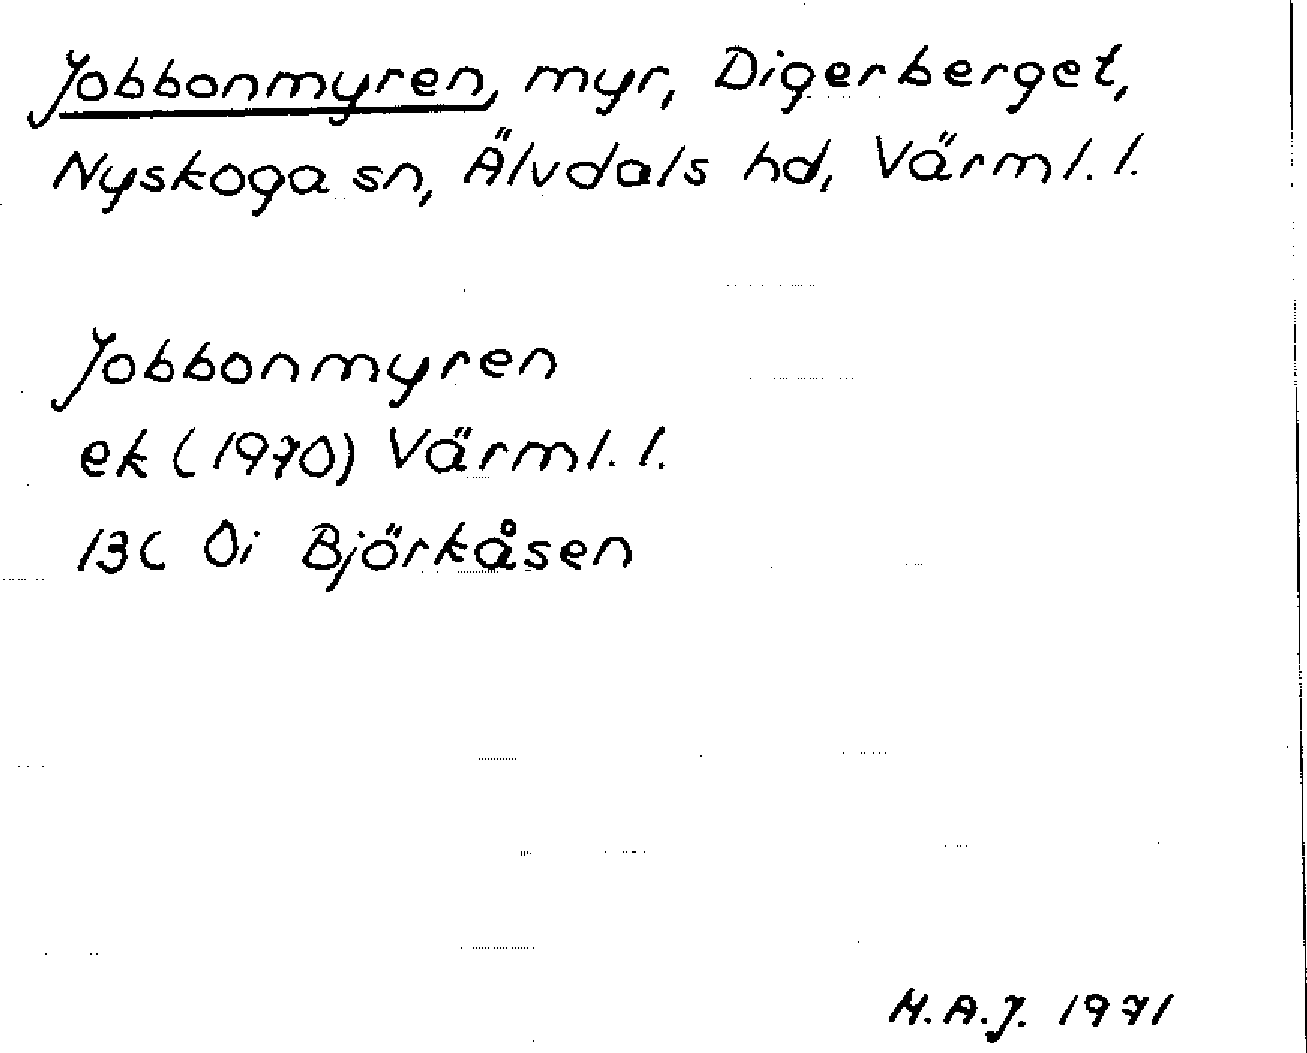 Jobbonmyren, myr, Digerberget,
Nyskoga sn, Älvdals hd, Värml. l.
Jobbonmyren
ek (1970) Värml. l.
13C 0i Björkåsen
M.A.J. 1971